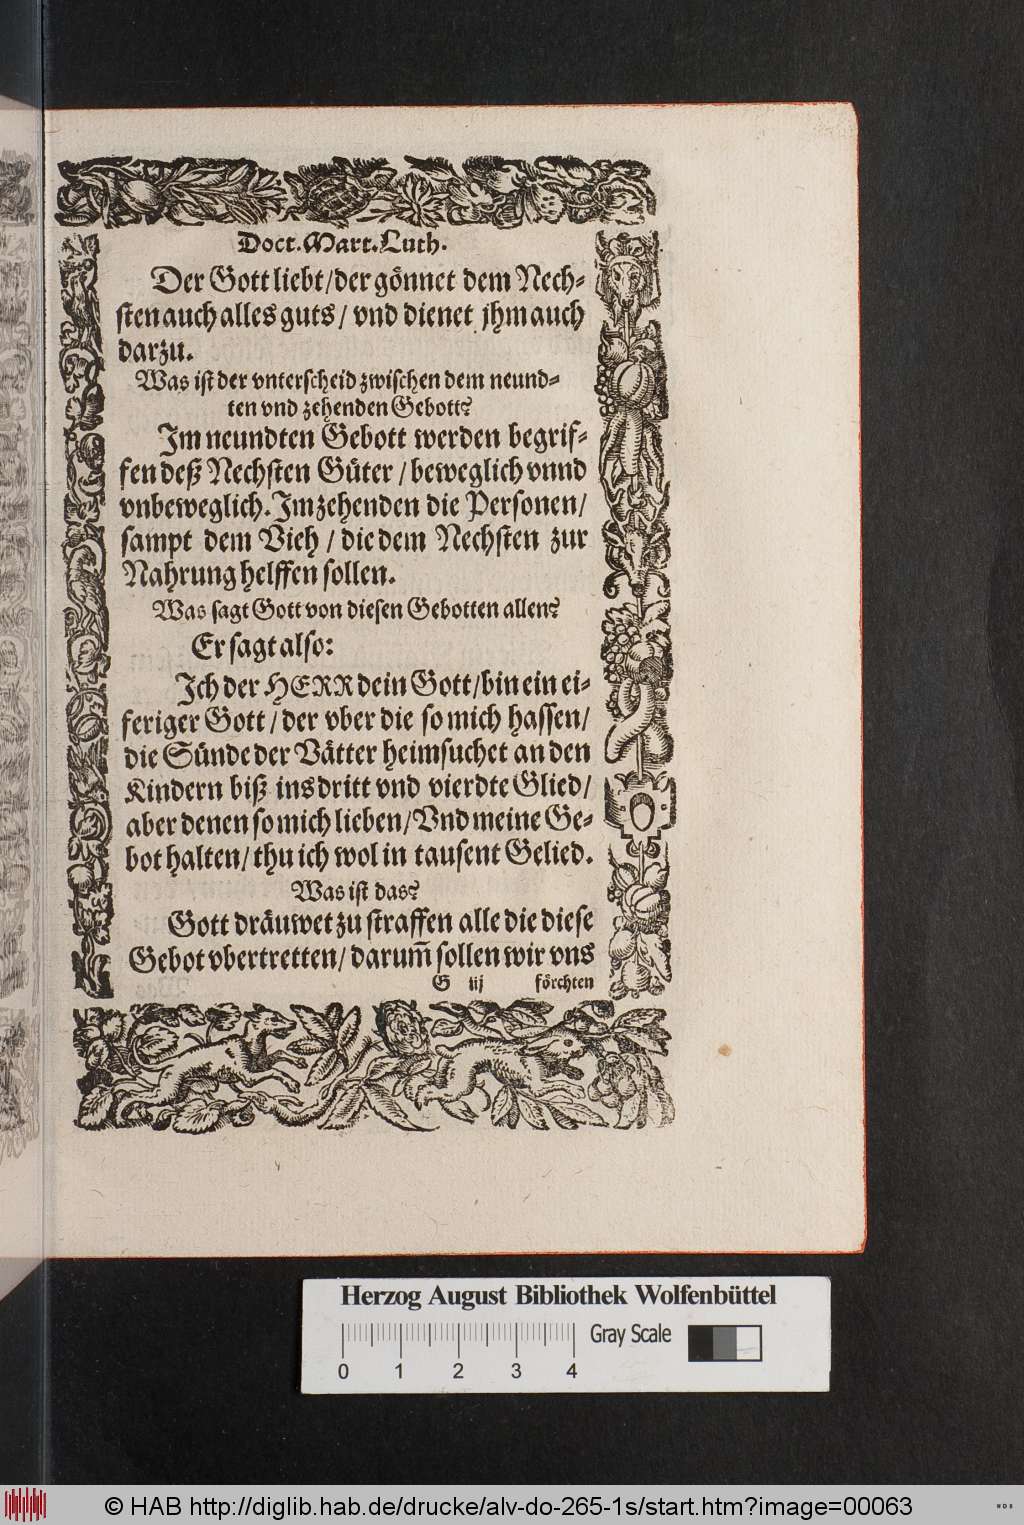 Doct. Mart. Luth.
Der Gott liebt/der gönnet dem Nech-
sten auch alles guts/ vnd dienet jhm auch
darzu.
Was ist der vnterscheid zwischen dem neund-
ten vnd zehenden Gebott?
Im neundten Gebott werden begrif-
fen deß Nechsten Güter / beweglich vnnd
vnbeweglich. Im zehenden die Personen/
sampt dem Vieh / die dem Nechsten zur
Nahrung helffen sollen.
Was sagt Gott von diesen Gebotten allen?
Er sagt also:
Ich der HERR dein Gott/bin ein ei-
feriger Gott/ der vber die so mich hassen/
die Sünde der Vätter heimsuchet an den
Kindern biß ins dritt vnd vierdte Glied/
aber denen so mich lieben/ Vnd meine Ge-
bot halten/ thu ich wol in tausent Gelied.
Was ist das?
Gott dräuwet zu straffen alle die diese
Gebot vbertretten/ darum̃ sollen wir vns
G iij förchten
Herzog August Bibliothek Wolfenbüttel
Gray Scale
0 1 2 3 4
© HAB http://diglib.hab.de/drucke/alv-do-265-1s/start.htm?image=00063